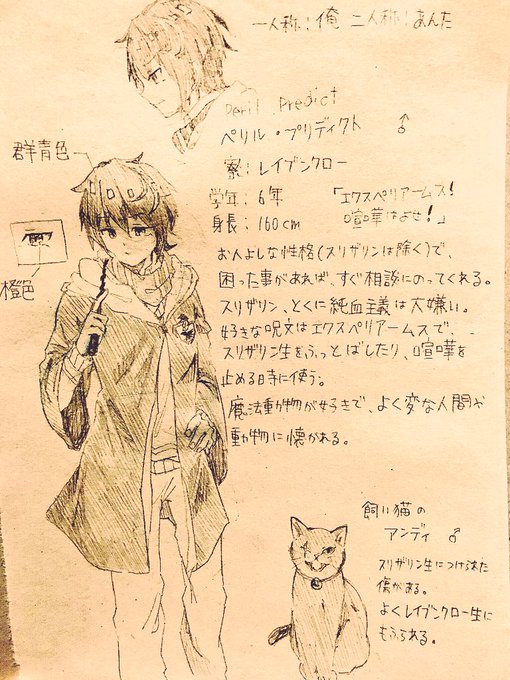 一人称:俺 二人称:あんた
Peril Predict
ペリル・プリディクト ♂
群青色
寮:レイブンクロー
学年:6年
身長:160cm
「エクスペリアームス!
喧嘩はよせ!」
橙色
お人よしな性格(スリザリンは除く)で、
困った事があれば、すぐ相談にのってくれる。
スリザリン、とくに純血主義は大嫌い。
好きな呪文はエクスペリアームスで、
スリザリン生をふっとばしたり、喧嘩を
止める時に使う。
魔法動物が好きで、よく変な人間や
動物に懐かれる。
飼い猫の
アンディ ♂
スリザリン生につけられた
傷がある。
よくレイブンクロー生に
もふられる。